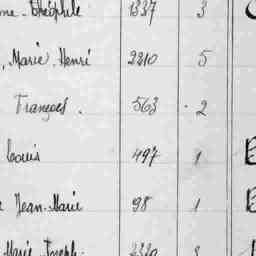 Théophile 1337 3
, Marie Henri 2210 5
François . 563 2
Louis 497 1
Jean-Marie 98 1
Marie Joseph